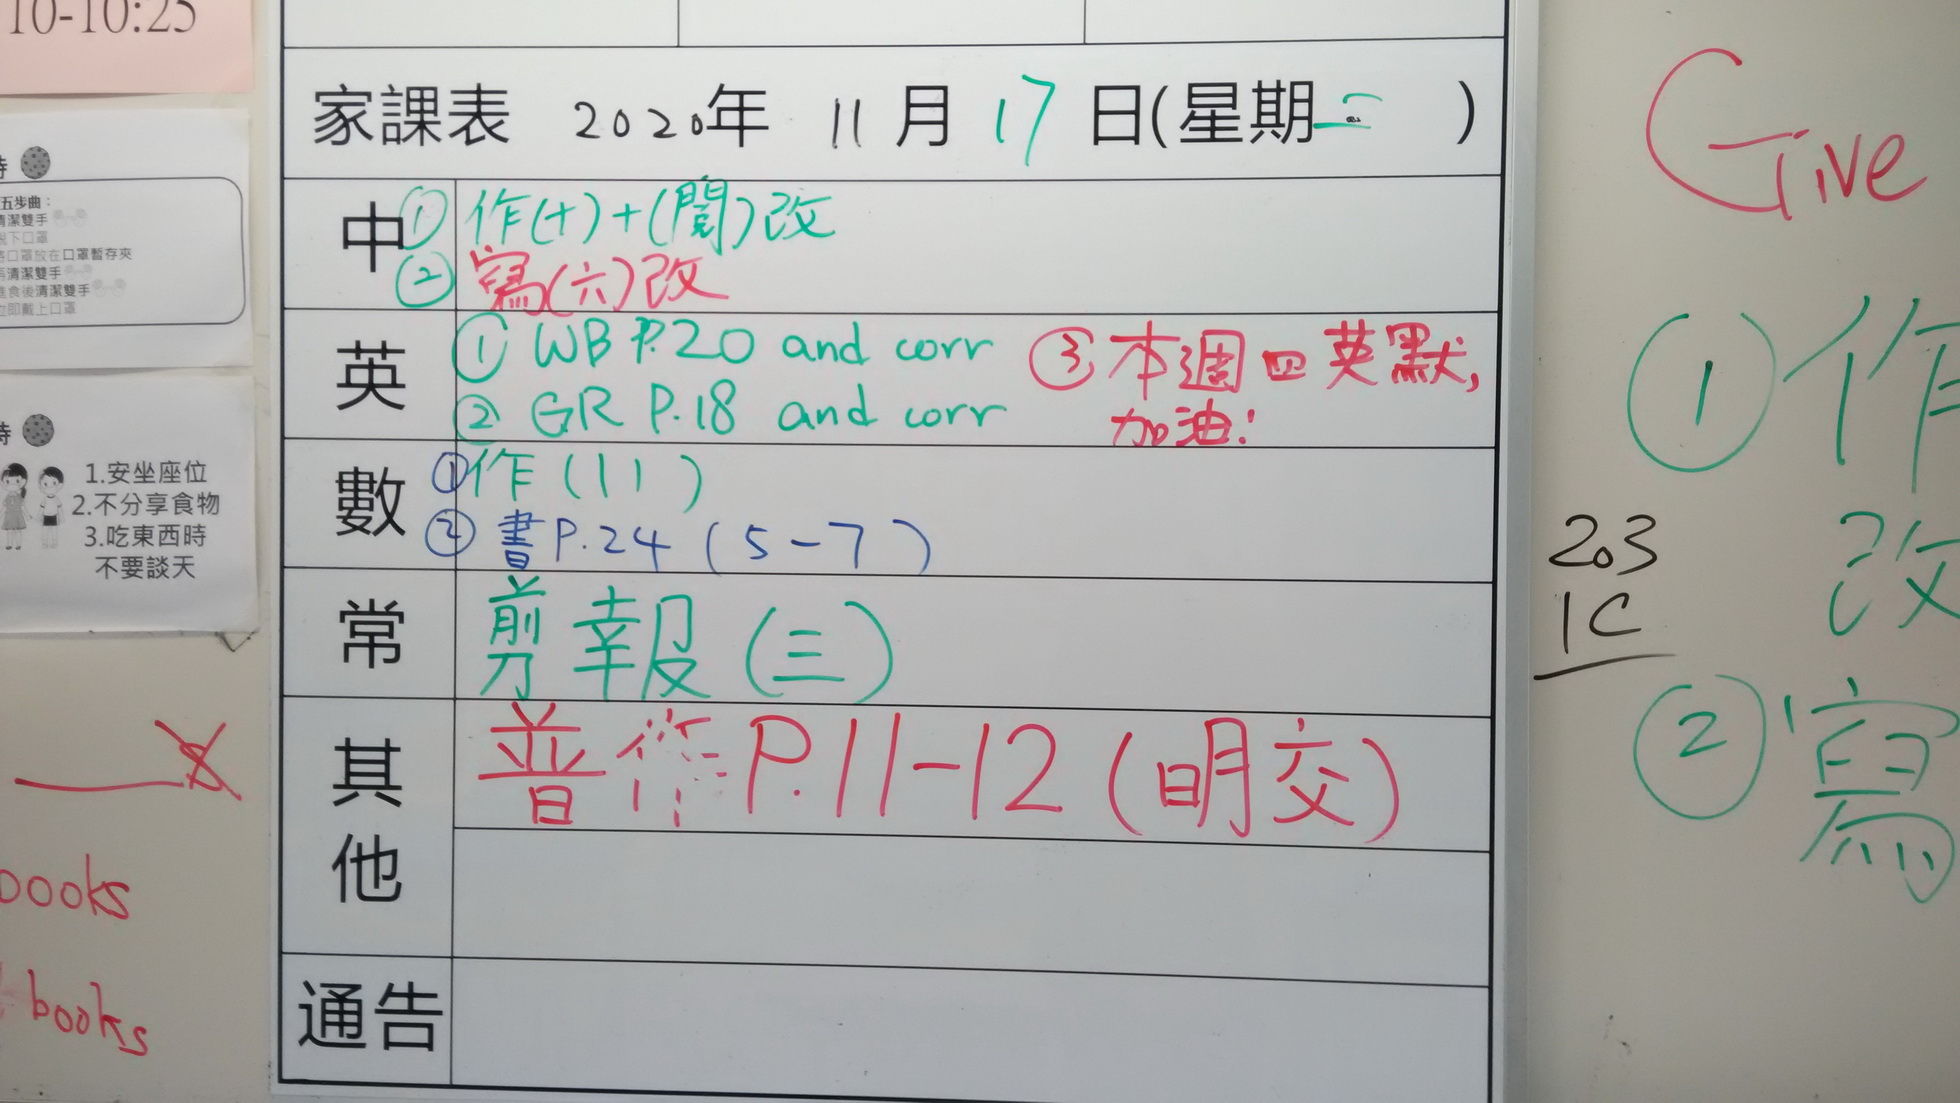 10-10:25
家課表 2020年 11月 17日(星期二 )
中 ① 作(十)+(閱)改
② 寫(六)改
英 ① WB P.20 and corr
② GR P.18 and corr
③ 本週四英默,
加油!
數 ① 作(11)
② 書P.24 (5-7)
常 剪報(三)
其他 普作 P.11-12 (明交)
通告
五步曲:
清潔雙手
脫下口罩
將口罩放在口罩暫存夾
再清潔雙手
進食後清潔雙手
立即戴上口罩
時
1.安坐座位
2.不分享食物
3.吃東西時
不要談天
books
books
Give
① 作
改
② 寫
203
1C